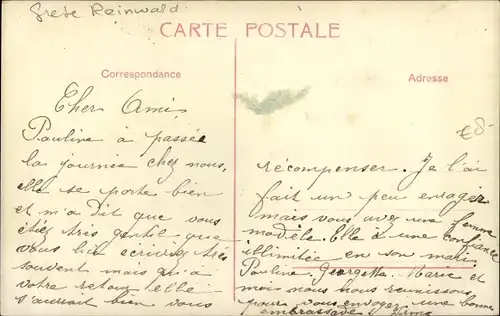 Grete Reinwald
CARTE POSTALE
Correspondance
Cher Ami
Pauline à passée
la journée chez nous,
elle se porte bien
et m'a dit que vous
étiez très gentil que
vous lui écriviez très
souvent mais qu'a
votre retour elle
s'aurait bien vous
Adresse
€8-
récompenser. Je l'ai
fait un peu enrager
mais vous avez une femme
modèle. Elle à une confiance
illimitée en son mari
Pauline, Georgette, Marie et
moi nous nous reunissons
pour vous envoyer une bonne
embrassade